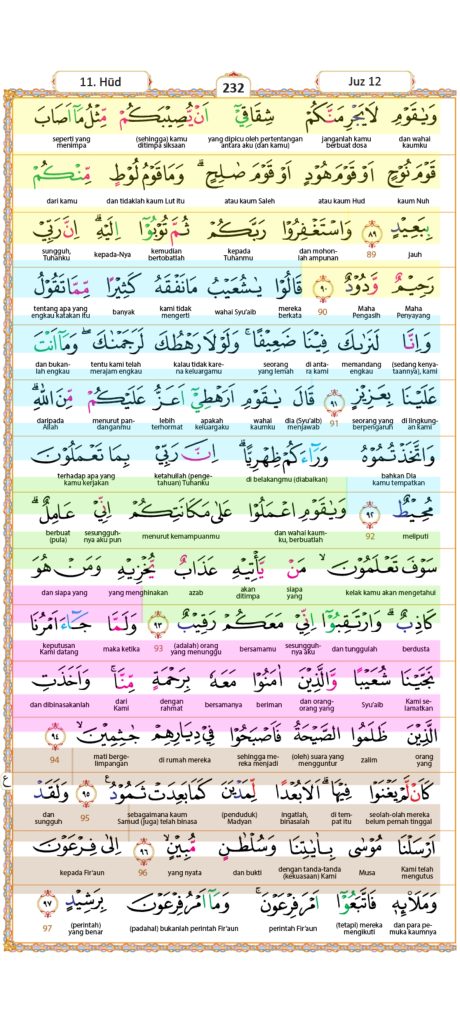 11. Hūd
232
Juz 12
وَيٰقَوْمِ لَا يَجْرِمَنَّكُمْ شِقَاقِيْٓ اَنْ يُّصِيْبَكُمْ مِّثْلُ مَآ اَصَابَ
dan wahai kaumku janganlah kamu berbuat dosa yang dipicu oleh pertentangan antara aku (dan kamu) (sehingga) kamu ditimpa siksaan seperti yang menimpa
قَوْمَ نُوْحٍ اَوْ قَوْمَ هُوْدٍ اَوْ قَوْمَ صٰلِحٍ ۗ وَمَا قَوْمُ لُوْطٍ مِّنْكُمْ
kaum Nuh atau kaum Hud atau kaum Saleh dan tidaklah kaum Lut itu dari kamu
بِبَعِيْدٍ ٨٩ وَاسْتَغْفِرُوْا رَبَّكُمْ ثُمَّ تُوْبُوْٓا اِلَيْهِ ۗ اِنَّ رَبِّيْ
jauh 89 dan mohon-lah ampunan kepada Tuhanmu kemudian bertobatlah kepada-Nya sungguh, Tuhanku
رَحِيْمٌ وَّدُوْدٌ ٩٠ قَالُوْا يٰشُعَيْبُ مَا نَفْقَهُ كَثِيْرًا مِّمَّا تَقُوْلُ
Maha Penyayang Maha Pengasih 90 mereka berkata wahai Syu'aib kami tidak mengerti banyak tentang apa yang engkau katakan itu
وَاِنَّا لَنَرٰىكَ فِيْنَا ضَعِيْفًا ۗ وَلَوْلَا رَهْطُكَ لَرَجَمْنٰكَ ۖ وَمَآ اَنْتَ
(sedang kenya-taannya), kami memandang engkau di anta-ra kami seorang yang lemah kalau tidak kare-na keluargamu tentu kami telah merajam engkau dan bukan-lah engkau
عَلَيْنَا بِعَزِيْزٍ ٩١ قَالَ يٰقَوْمِ اَرَهْطِيْٓ اَعَزُّ عَلَيْكُمْ مِّنَ اللّٰهِ ۗ
di lingkung-an kami seorang yang berpengaruh 91 dia (Syu'aib) menjawab wahai kaumku apakah keluargaku lebih terhormat menurut pan-danganmu daripada Allah
وَاتَّخَذْتُمُوْهُ وَرَاۤءَكُمْ ظِهْرِيًّا ۗ اِنَّ رَبِّيْ بِمَا تَعْمَلُوْنَ
bahkan Dia kamu tempatkan di belakangmu (diabaikan) ketahuilah (penge-tahuan) Tuhanku terhadap apa yang kamu kerjakan
مُحِيْطٌ ٩٢ وَيٰقَوْمِ اعْمَلُوْا عَلٰى مَكَانَتِكُمْ اِنِّيْ عَامِلٌ ۗ
meliputi 92 dan wahai kaum-ku, berbuatlah menurut kemampuanmu sesungguh-nya aku pun berbuat (pula)
سَوْفَ تَعْلَمُوْنَ ۙ مَنْ يَّأْتِيْهِ عَذَابٌ يُّخْزِيْهِ وَمَنْ هُوَ
kelak kamu akan mengetahui siapa yang akan ditimpa azab yang menghinakan dan siapa yang
كَاذِبٌ ۗ وَارْتَقِبُوْٓا اِنِّيْ مَعَكُمْ رَقِيْبٌ ٩٣ وَلَمَّا جَاۤءَ اَمْرُنَا
berdusta dan tunggulah sesungguh-nya aku bersamamu (adalah) orang yang menunggu 93 maka ketika keputusan Kami datang
نَجَّيْنَا شُعَيْبًا وَّالَّذِيْنَ اٰمَنُوْا مَعَهٗ بِرَحْمَةٍ مِّنَّا ۚ وَاَخَذَتِ
Kami se-lamatkan Syu'aib dan orang-orang yang beriman bersamanya dengan rahmat dari Kami dan dibinasakanlah
الَّذِيْنَ ظَلَمُوا الصَّيْحَةُ فَاَصْبَحُوْا فِيْ دِيَارِهِمْ جٰثِمِيْنَ ۙ ٩٤
orang yang zalim (oleh) suara yang mengguntur sehingga me-reka menjadi di rumah mereka mati berge-limpangan 94
كَاَنْ لَّمْ يَغْنَوْا فِيْهَا ۗ اَلَا بُعْدًا لِّمَدْيَنَ كَمَا بَعِدَتْ ثَمُوْدُ ࣖ ٩٥ وَلَقَدْ
seolah-olah mereka belum pernah tinggal di tem-pat itu Ingatlah, binasalah (penduduk) Madyan sebagaimana kaum Samud (juga) telah binasa 95 dan sungguh
ع
اَرْسَلْنَا مُوْسٰى بِاٰيٰتِنَا وَسُلْطٰنٍ مُّبِيْنٍ ۙ ٩٦ اِلٰى فِرْعَوْنَ
Kami telah mengutus Musa dengan tanda-tanda (kekuasaan) Kami dan bukti yang nyata 96 kepada Fir'aun
وَمَلَا۟ىِٕهٖ فَاتَّبَعُوْٓا اَمْرَ فِرْعَوْنَ ۚ وَمَآ اَمْرُ فِرْعَوْنَ بِرَشِيْدٍ ٩٧
dan para pe-muka kaumnya (tetapi) mereka mengikuti perintah Fir'aun (padahal) bukanlah perintah Fir'aun (perintah) yang benar 97